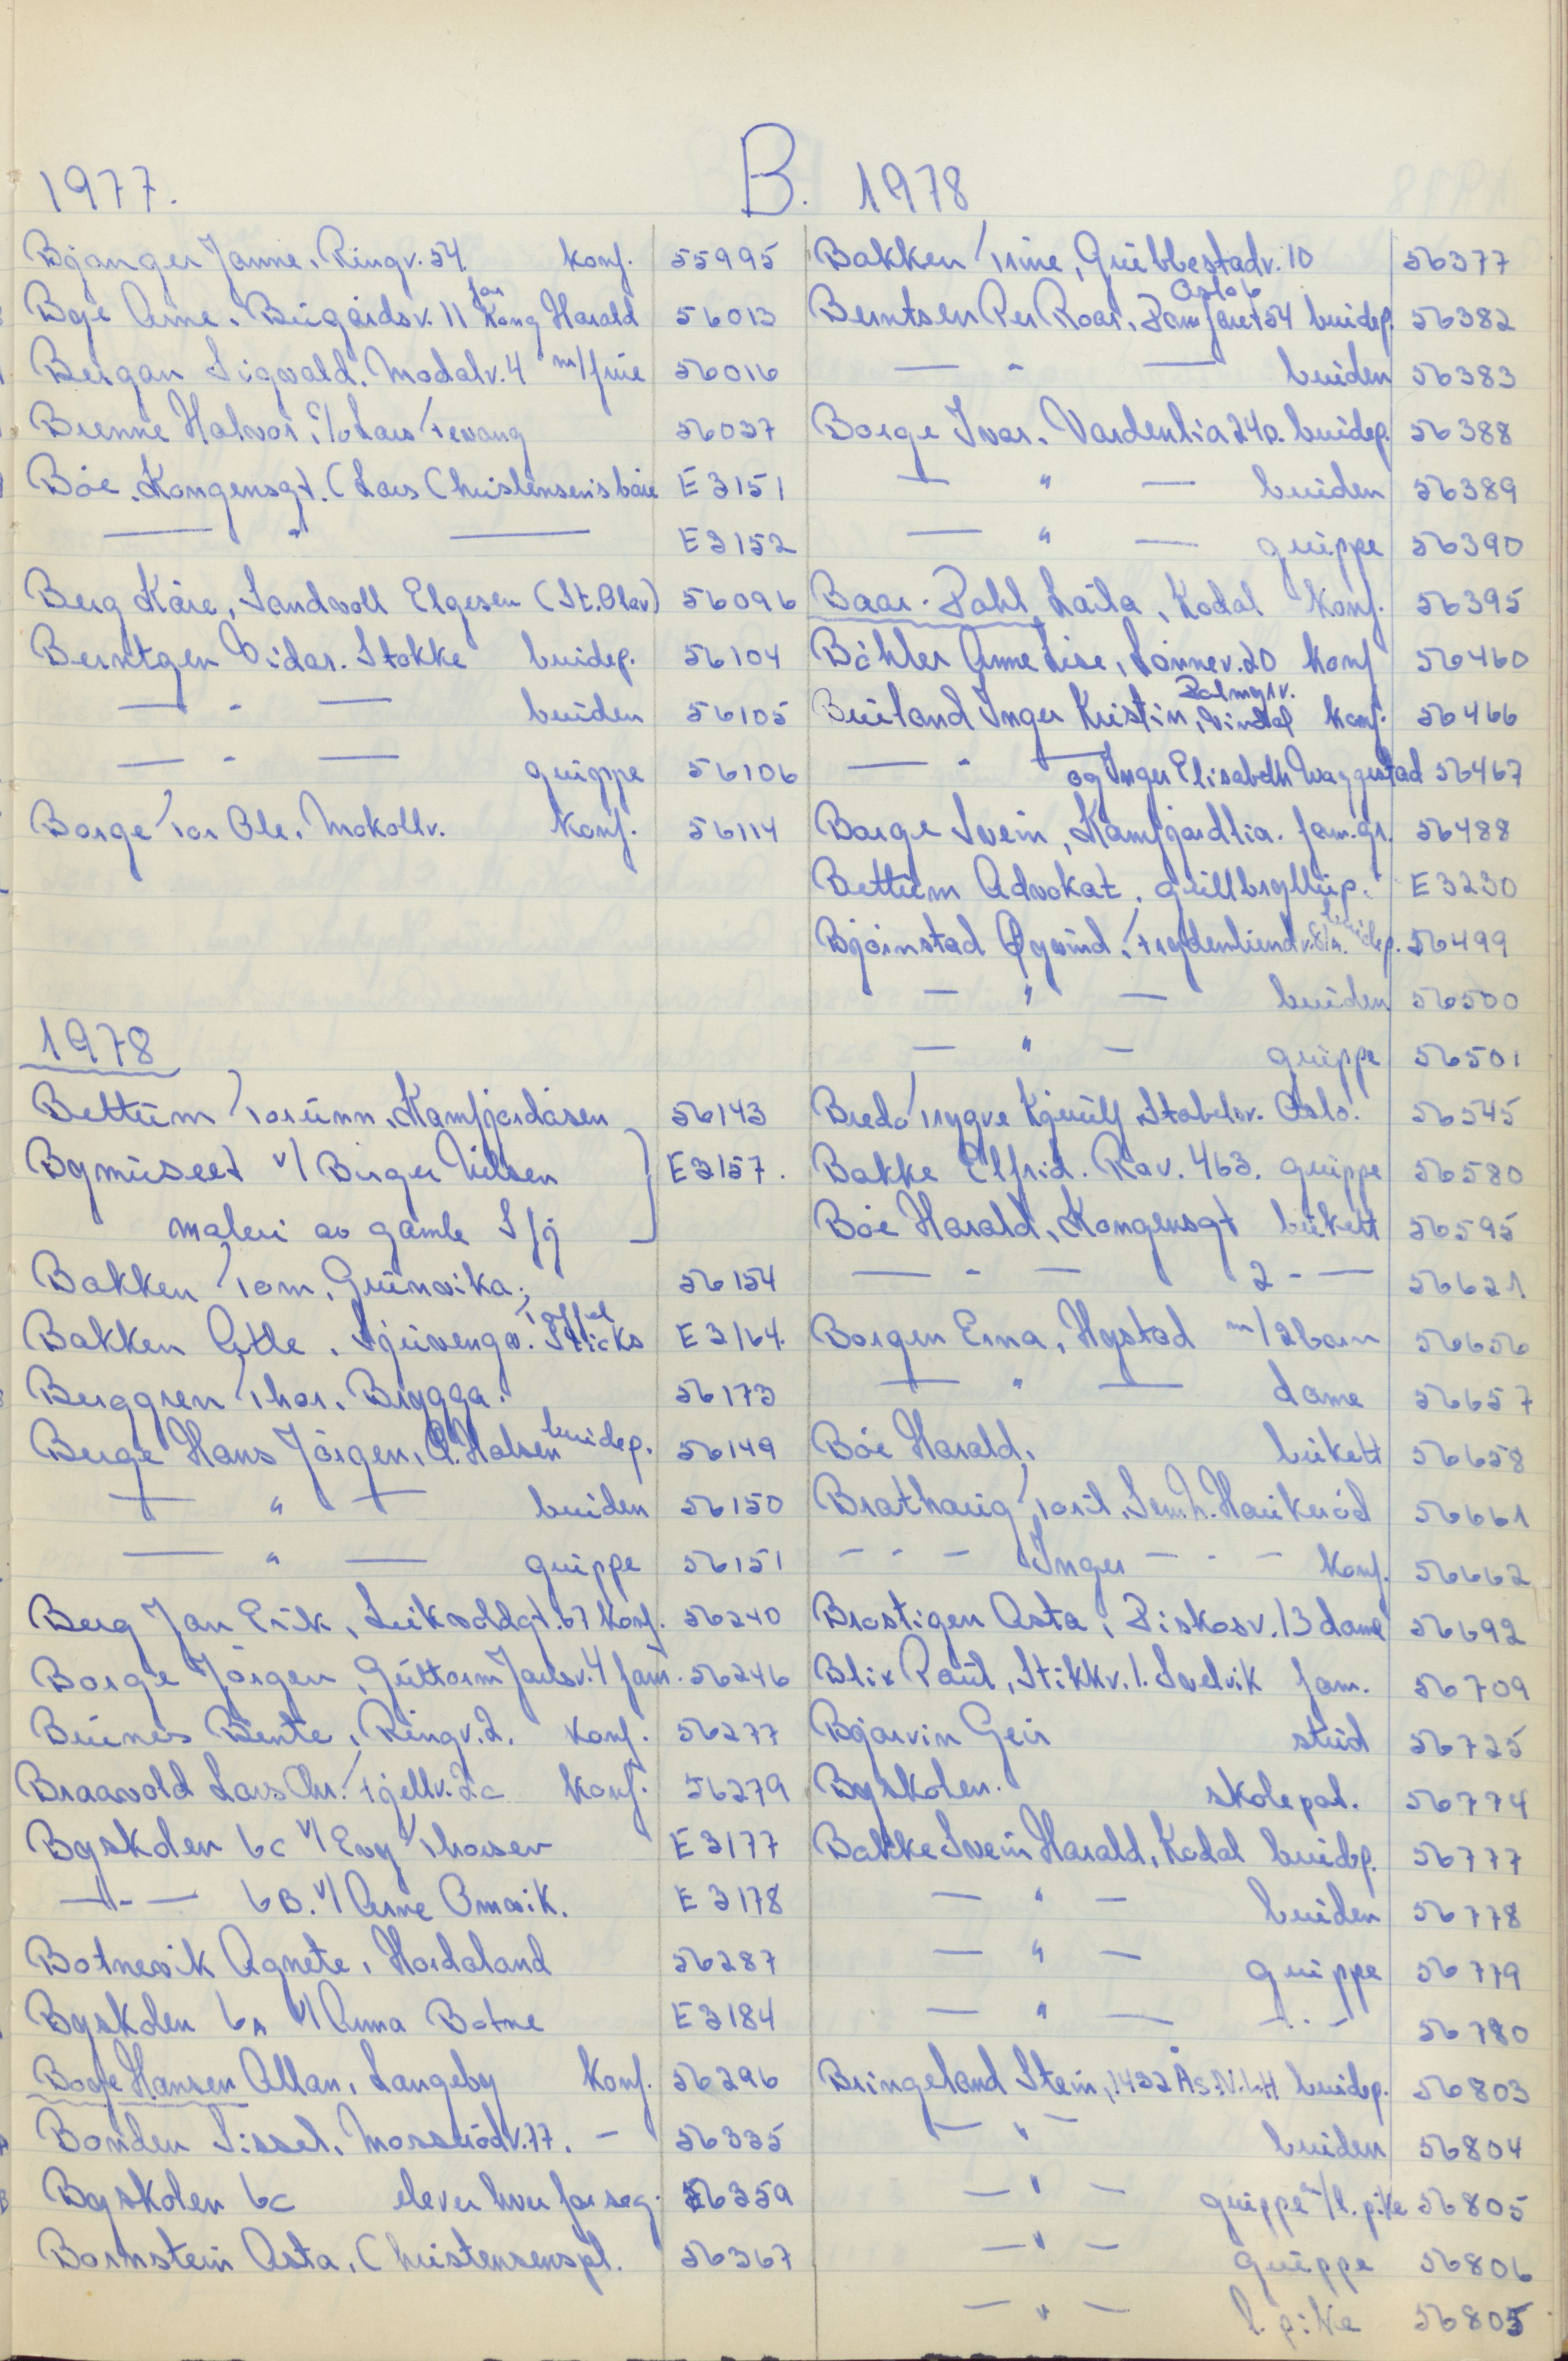 B.
1977.
Bjanger Janne, Ringv. 54. konf. 55995
Bge Arne. Bugårdsv. 11 for Kong Harald 56013
Bergan Sigvald. Modalv. 4 m/frue 56016
Brenne Halvor, c/o Lars Tevang 56037
Bøe. Kongensgt. (Lars Christensens båre E 3151
— " — E 3152
Berg Kåre, Sandvoll Elgesen (St. Olav) 56096
Berntzen Vidar. Stokke brudep. 56104
— " — bruden 56105
— " — gruppe 56106
Borge Tor Ole. Mokollv. konf. 56114
1978
Bettum Torunn, Kamfjordåsen 56143
Bymuseet v/ Birger Nilsen E 3157.
maleri av gamle S/fj
Bakken Tom, Grünvika. 56154
Bakken Atle, Sjuvengv. Toffel Sticks E 3164.
Berggren Thor. Brygga. 56173
Berge Hans Jörgen, Ø. Halsen brudep. 56149
— " — bruden 56150
— " — gruppe 56151
Berg Jan Erik, Leikvoldgt. 67 konf. 56240
Borge Jörgen, Guttorm Jarlsv. 4 fam. 56246
Buines Bente, Ringv. 2. konf. 56277
Braavold Lars Chr. Fjellv. 2c konf. 56279
Byskolen 6c v/ Evy Thorsen E 3177
— " — 6B. v/ Arne Omvik. E 3178
Botnevik Agnete, Hordaland 56287
Byskolen 6A v/ Anna Botne E 3184
Booge Hansen Allan, Langeby konf. 56296
Bonden Sissel, Mosserödv. 77. — 56335
Byskolen 6c elever hver for seg. 56359
Bornstein Asta, Christensenspl. 56367
1978
Bakken Trine, Grübbestadv. 10 56377
Berntsen Per Roar, Damfaret 54 Oslo 6 brudep. 56382
— " — bruden 56383
Borge Ivar. Vardenlia 24D. brudep. 56388
— " — bruden 56389
— " — gruppe 56390
Baar-Dahl Laila, Kodal konf. 56395
Böhler Anne Lise, Lönnev. 20 konf 56460
Brüland Inger Kristin, Palmgrv. Vindal konf. 56466
— " — og Inger Elisabeth Waggestad 56467
Borge Svein, Kamfjordlia. fam.gr. 56488
Bettum Advokat. gullbryllup. E 3230
Bjørnstad Øyvind, Frydenlundv. 81A. brudep. 56499
— " — bruden 56500
— " — gruppe 56501
Bredo Trygve Kjuulf, Stabelsv. Oslo. 56545
Bakke Elfrid. Rav. 463. gruppe 56580
Bøe Harald, Kongensgt bukett 56595
— " — 2 - — 56621.
Borgen Erna, Hystad m/ 2 barn 56656
— " — dame 56657
Bøe Harald, bukett 56658
Brathaug Toril, Sem h. Haukeröd 56661
— " — Inger — " — konf. 56662
Brostigen Asta, Piskosv. 13 dame 56692
Blix Paul, Stikkv. 1. Svelvik fam. 56709
Bjarvin Geir stud 56725
Byskolen. skolepat. 56774
Bakke Svein Harald, Kodal brudep. 56777
— " — bruden 56778
— " — gruppe 56779
— " — - " - 56780
Bringeland Stein, 1432 Ås N.L.H brudep. 56803
— " — bruden 56804
— " — gruppe m/ l. pike 56805
— " — gruppe 56806
— " — l. pike 56805